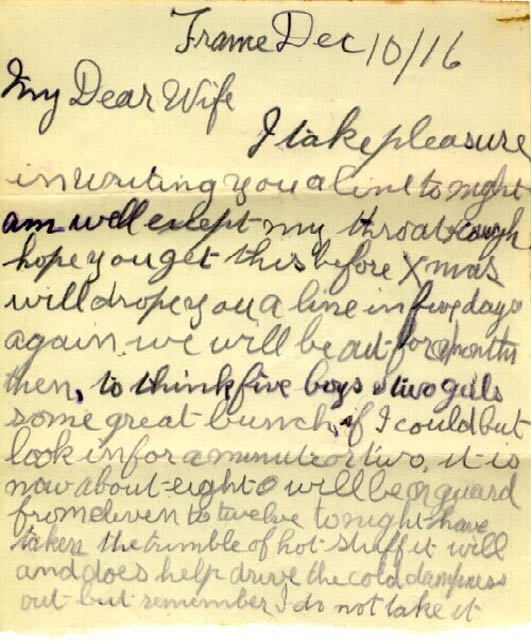 Frame Dec 10/16
My Dear Wife
I take pleasure
in writing you a line to night
am well except my throat & cough
hope you get this before Xmas
will drope you a line in five days
again we will be out for months
then, to think five boys & two girls
some great bunch, if I could but
look in for a minute or two, it is
now about eight O will be on guard
from eleven to twelve tonight have
taken the tumble of hot stuff it will
and does help drive the cold dampness
out but remember I do not take it